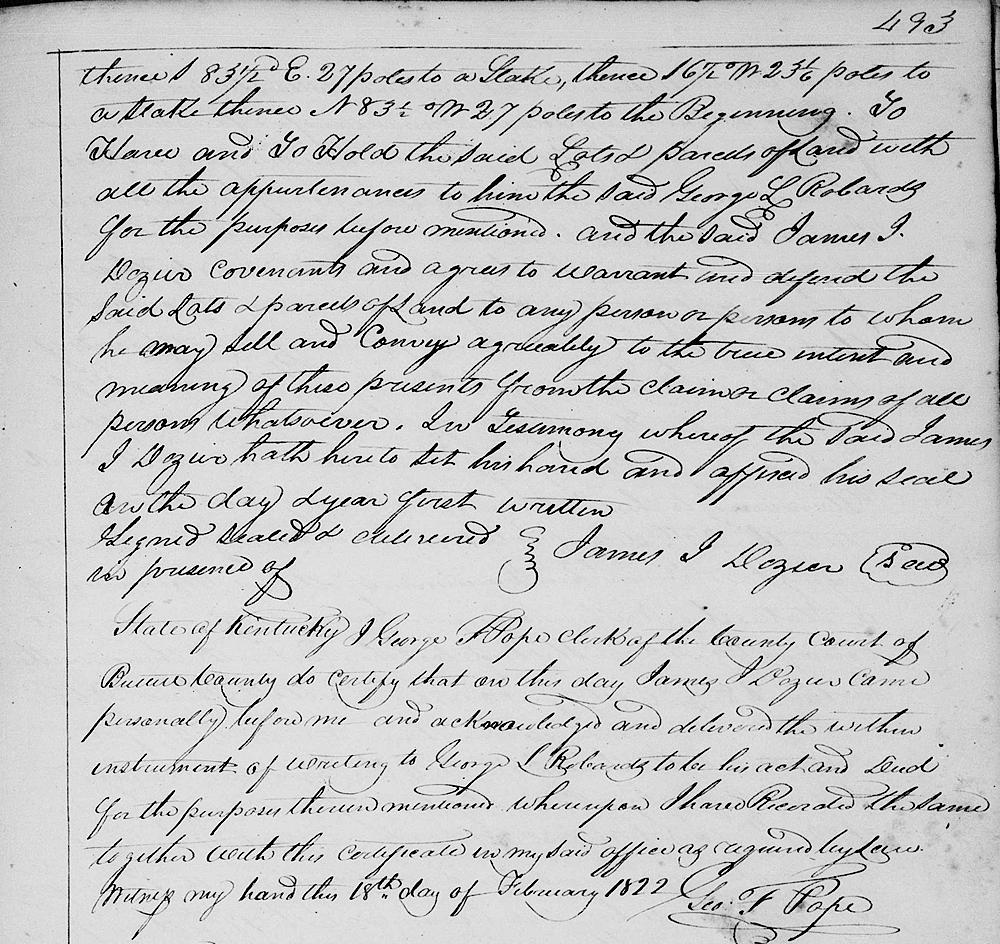 493
thence S 83½° E. 27 poles to a Stake, thence S 6½° W 23⅙ poles to
a stake thence N 83½ °W 27 poles to the Beginning. To
Have and To Hold the said Lots & parcels of Land with
all the appurtenances to him the said George L Robards
for the purposes before mentioned. and the said James I.
Dozier covenants and agrees to warrant and defend the
said Lots & parcels of Land to any person or persons to whom
he may sell and Convey agreeably to the true intent and
meaning of these presents from the claim or claims of all
persons whatsoever. In Testimony whereof the said James
I Dozier hath here to set his hand and affixed his seal
on the day & year first written
Signed sealed & delivered
in presence of
James I Dozier Seal
State of Kentucky I George F Pope clerk of the County Court of
County do Certify that on this day James I Dozier Came
personally before me and acknowledged and delivered the within
instrument of writing to George L Robards to be his act and Deed
for the purposes therein mentioned whereupon I have Recorded the same
together with this certificate in my said office as required by Law.
Witness my hand this 18th day of February 1822
Geo. F Pope